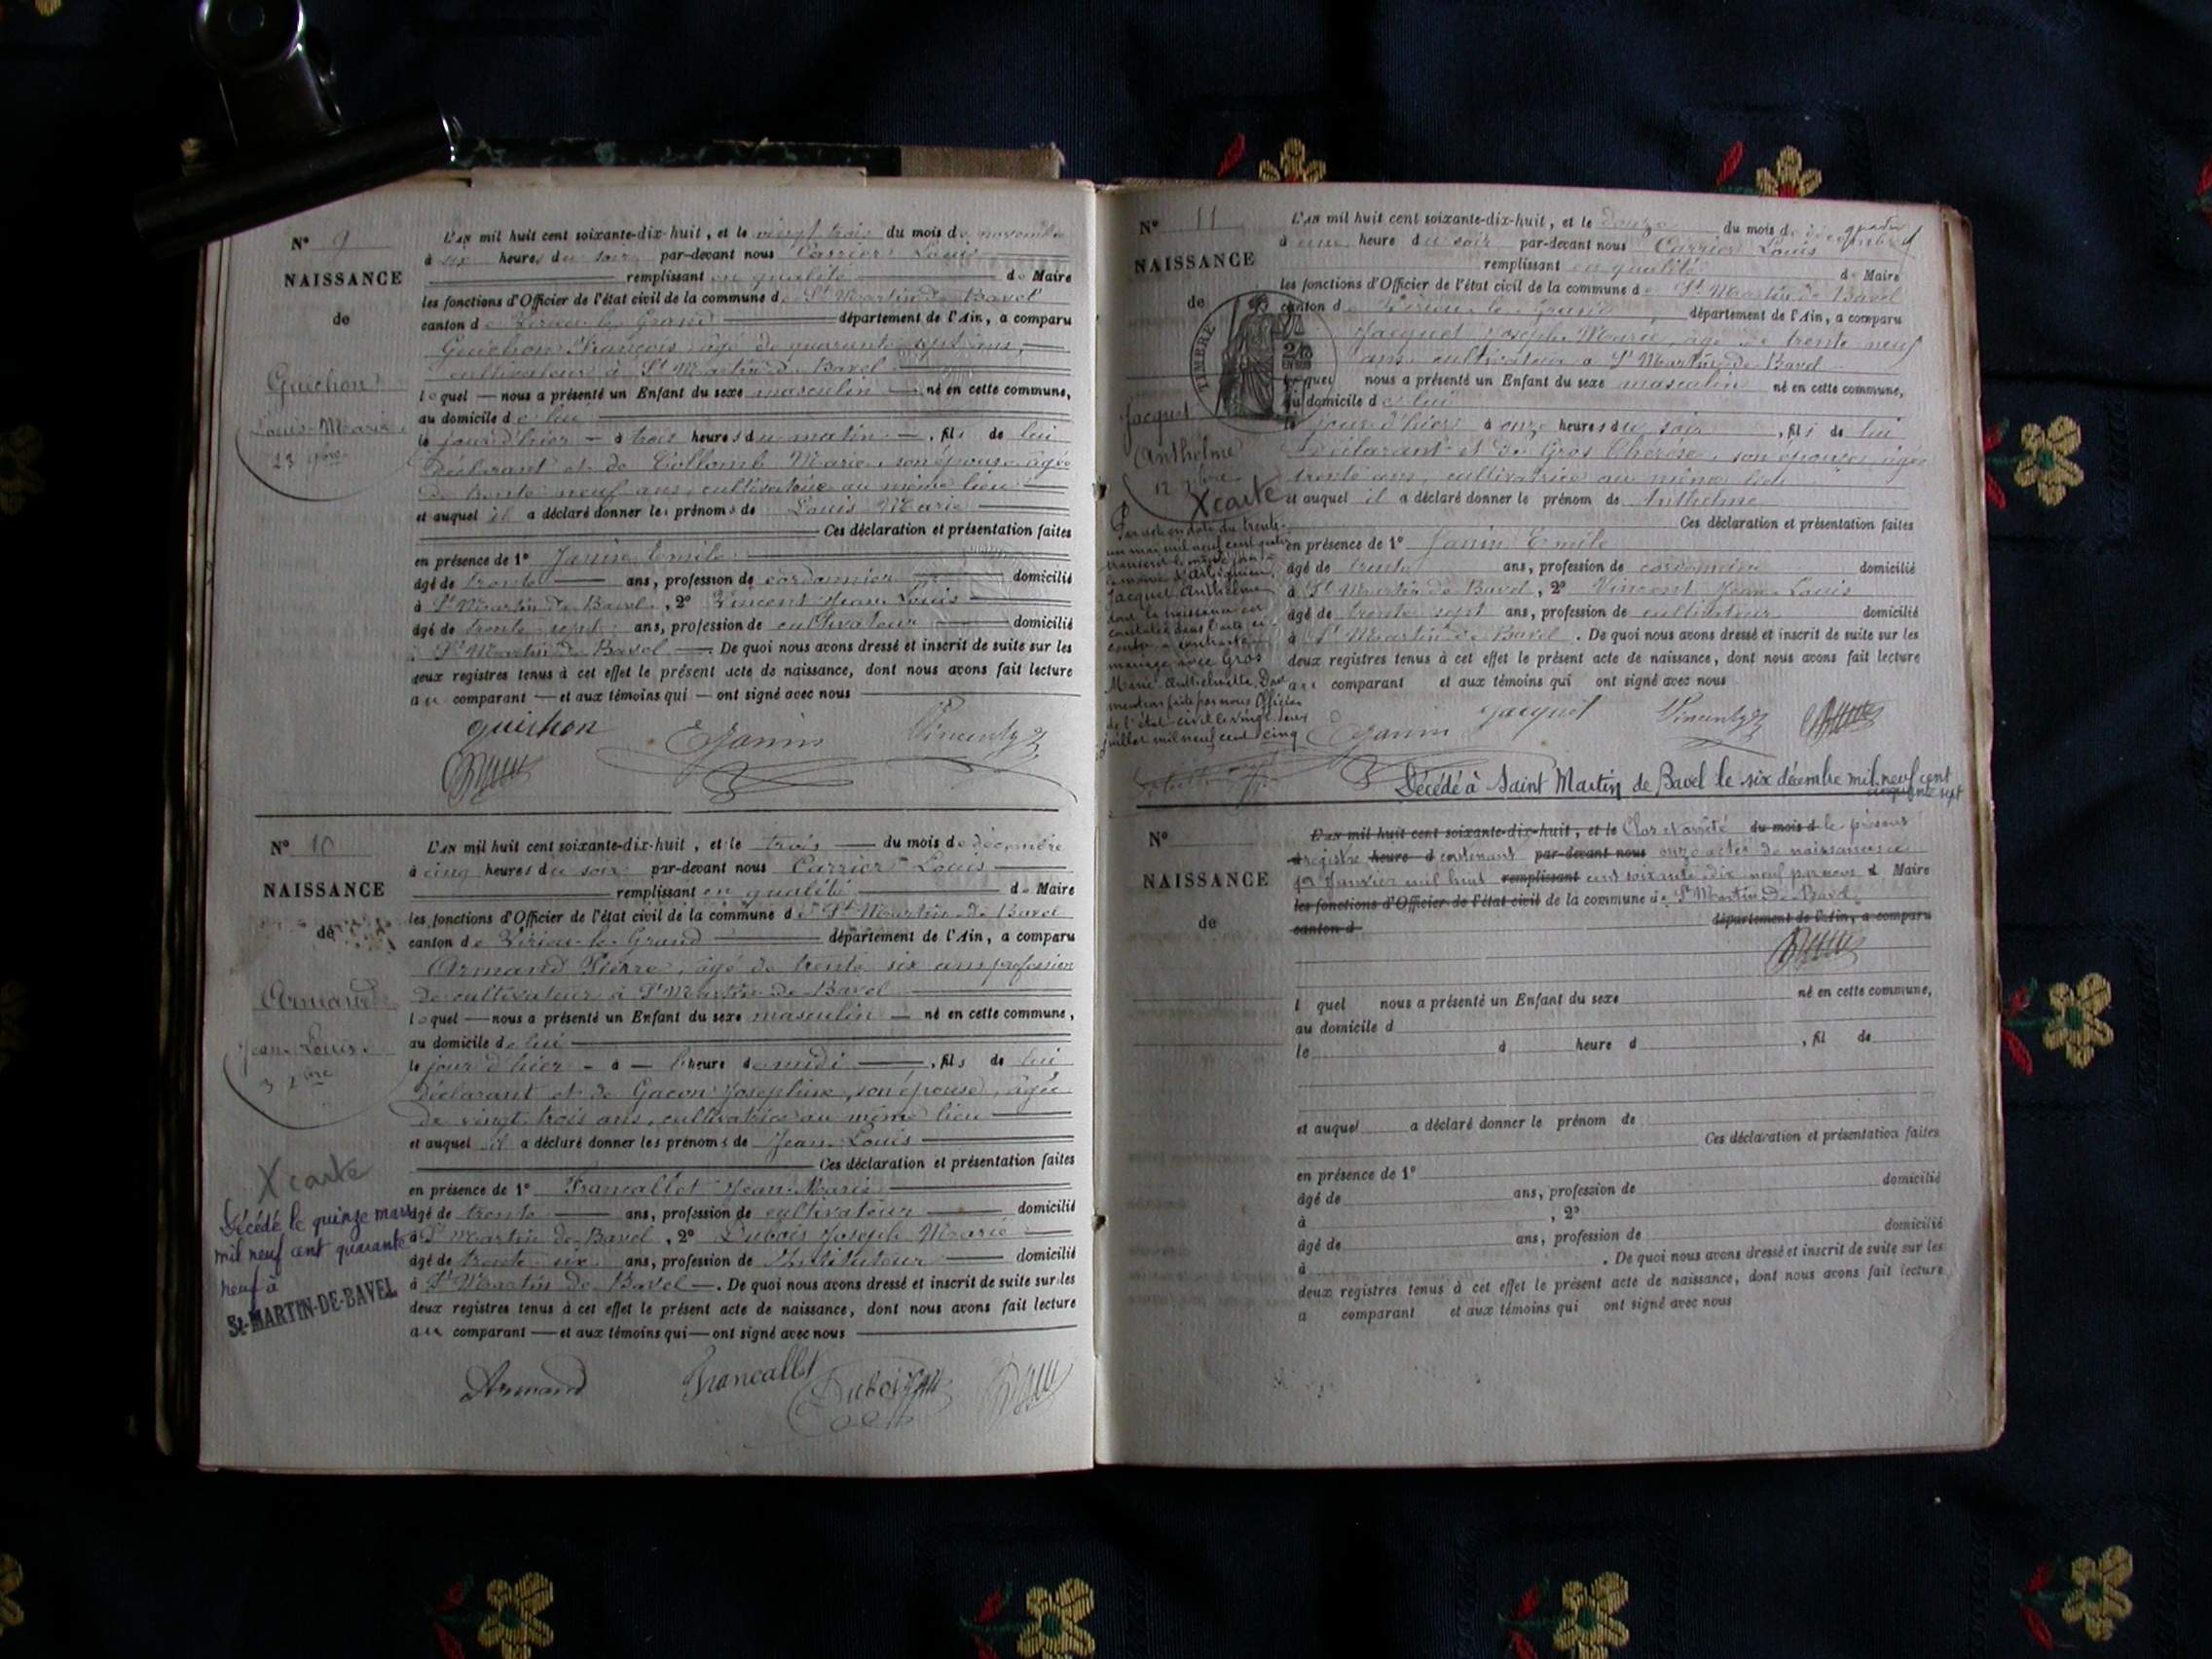 N° 9
NAISSANCE
de
Guichon
Louis-Marie
23 9bre
L'AN mil huit cent soixante-dix-huit, et le vingt trois du mois de novembre
à six heures du soir par-devant nous Carrier Louis
remplissant en qualité de Maire
les fonctions d'Officier de l'état civil de la commune de St Martin de Bavel
canton de Virieu le Grand département de l'Ain, a comparu
Guichon François âgé de quarante sept ans,
cultivateur à St Martin de Bavel
lequel nous a présenté un Enfant du sexe masculin né en cette commune,
au domicile de lui
le jour d'hier à trois heures du matin, fils de lui
déclarant et de Collomb Marie, son épouse âgée
de trente neuf ans, cultivatrice au même lieu
et auquel il a déclaré donner les prénoms de Louis Marie
Ces déclaration et présentation faites
en présence de 1° Janin Emile
âgé de trente ans, profession de cordonnier domicilié
à St Martin de Bavel, 2° Vincent Jean Louis
âgé de trente sept ans, profession de cultivateur domicilié
à St Martin de Bavel. De quoi nous avons dressé et inscrit de suite sur les
deux registres tenus à cet effet le présent acte de naissance, dont nous avons fait lecture
au comparant et aux témoins qui ont signé avec nous
guishon EJanin Vincent
N° 10
NAISSANCE
de
Armand
Jean-Louis
3 Xbre
X carte
Décédé le quinze mars
mil neuf cent quarante
neuf à
St-MARTIN-DE-BAVEL
L'AN mil huit cent soixante-dix-huit, et le trois du mois de décembre
à cinq heures du soir par-devant nous Carrier Louis
remplissant en qualité de Maire
les fonctions d'Officier de l'état civil de la commune de St Martin de Bavel
canton de Virieu le Grand département de l'Ain, a comparu
Armand Pierre, âgé de trente six ans profession
de cultivateur à St Martin de Bavel
lequel nous a présenté un Enfant du sexe masculin né en cette commune,
au domicile de lui
le jour d'hier à heure de midi, fils de lui
déclarant et de Gacon Josephine, son épouse, âgée
de vingt trois ans, cultivatrice au même lieu
et auquel il a déclaré donner les prénoms de Jean Louis
Ces déclaration et présentation faites
en présence de 1° Francallet Jean Marie
âgé de trente ans, profession de cultivateur domicilié
à St Martin de Bavel, 2° Dubois Joseph Marie
âgé de trente six ans, profession de Instituteur domicilié
à St Martin de Bavel. De quoi nous avons dressé et inscrit de suite sur les
deux registres tenus à cet effet le présent acte de naissance, dont nous avons fait lecture
au comparant et aux témoins qui ont signé avec nous
Armand Francallet Dubois
N° 11
NAISSANCE
de
TIMBRE
Jacquet
Anthelme
X carte
Par acte en date du trente-
un mai mil neuf cent quatre
Jacquet Anthelme
dont la naissance est
constatée dans l'acte ci-
contre a contracté
mariage avec Gros
Marie Anthelmette. Dont
mention faite par nous Officier
de l'état-civil le vingt deux
juillet mil neuf cent cinq
L'AN mil huit cent soixante-dix-huit, et le douze du mois de décembre
à une heure du soir par-devant nous Carrier Louis
remplissant en qualité de Maire
les fonctions d'Officier de l'état civil de la commune de St Martin de Bavel
canton de Virieu le Grand, département de l'Ain, a comparu
Jacquet Joseph Marie, âgé de trente neuf
ans cultivateur à St Martin de Bavel
lequel nous a présenté un Enfant du sexe masculin né en cette commune,
au domicile de lui
le jour d'hier à onze heures du soir, fils de lui
déclarant et de Gros Thérèse, son épouse, âgée
trente ans, cultivatrice au même lieu
et auquel il a déclaré donner le prénom de Anthelme
Ces déclaration et présentation faites
en présence de 1° Janin Emile
âgé de trente ans, profession de cordonnier domicilié
à St Martin de Bavel, 2° Vincent Jean Louis
âgé de trente sept ans, profession de cultivateur domicilié
à St Martin de Bavel. De quoi nous avons dressé et inscrit de suite sur les
deux registres tenus à cet effet le présent acte de naissance, dont nous avons fait lecture
au comparant et aux témoins qui ont signé avec nous
EJanin Jacquet Vincent
Décédé à Saint Martin de Bavel le six décembre mil neuf cent
cinquante sept
N°
NAISSANCE
de
L'AN mil huit cent soixante-dix-huit, et le Clos et arrêté du mois d le présent
à registre heure d contenant par-devant nous onze actes de naissance
1er Janvier mil huit remplissant cent soixante dix neuf par nous d Maire
les fonctions d'Officier de l'état civil de la commune de St Martin de Bavel
canton d département de l'Ain, a comparu
l quel nous a présenté un Enfant du sexe né en cette commune,
au domicile d
le à heure d , fil de
et auquel a déclaré donner le prénom de
Ces déclaration et présentation faites
en présence de 1°
âgé de ans, profession de domicilié
à , 2°
âgé de ans, profession de domicilié
à . De quoi nous avons dressé et inscrit de suite sur les
deux registres tenus à cet effet le présent acte de naissance, dont nous avons fait lecture
a comparant et aux témoins qui ont signé avec nous